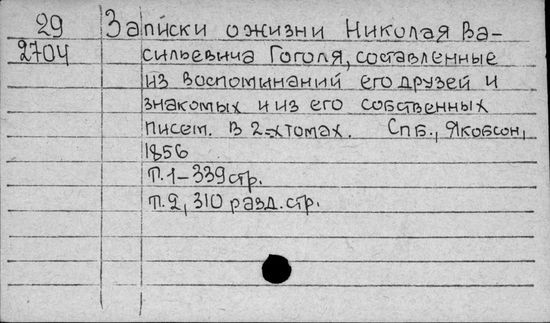 29 Записки о жизни Николая Ва-
2704 сильевича Гоголя, составленные
из воспоминаний его друзей и
знакомых и из его собственных
писем. В 2-х томах. СПб., Якобсон,
1856
Т.1-339 стр.
т.2, 310 разд. стр.